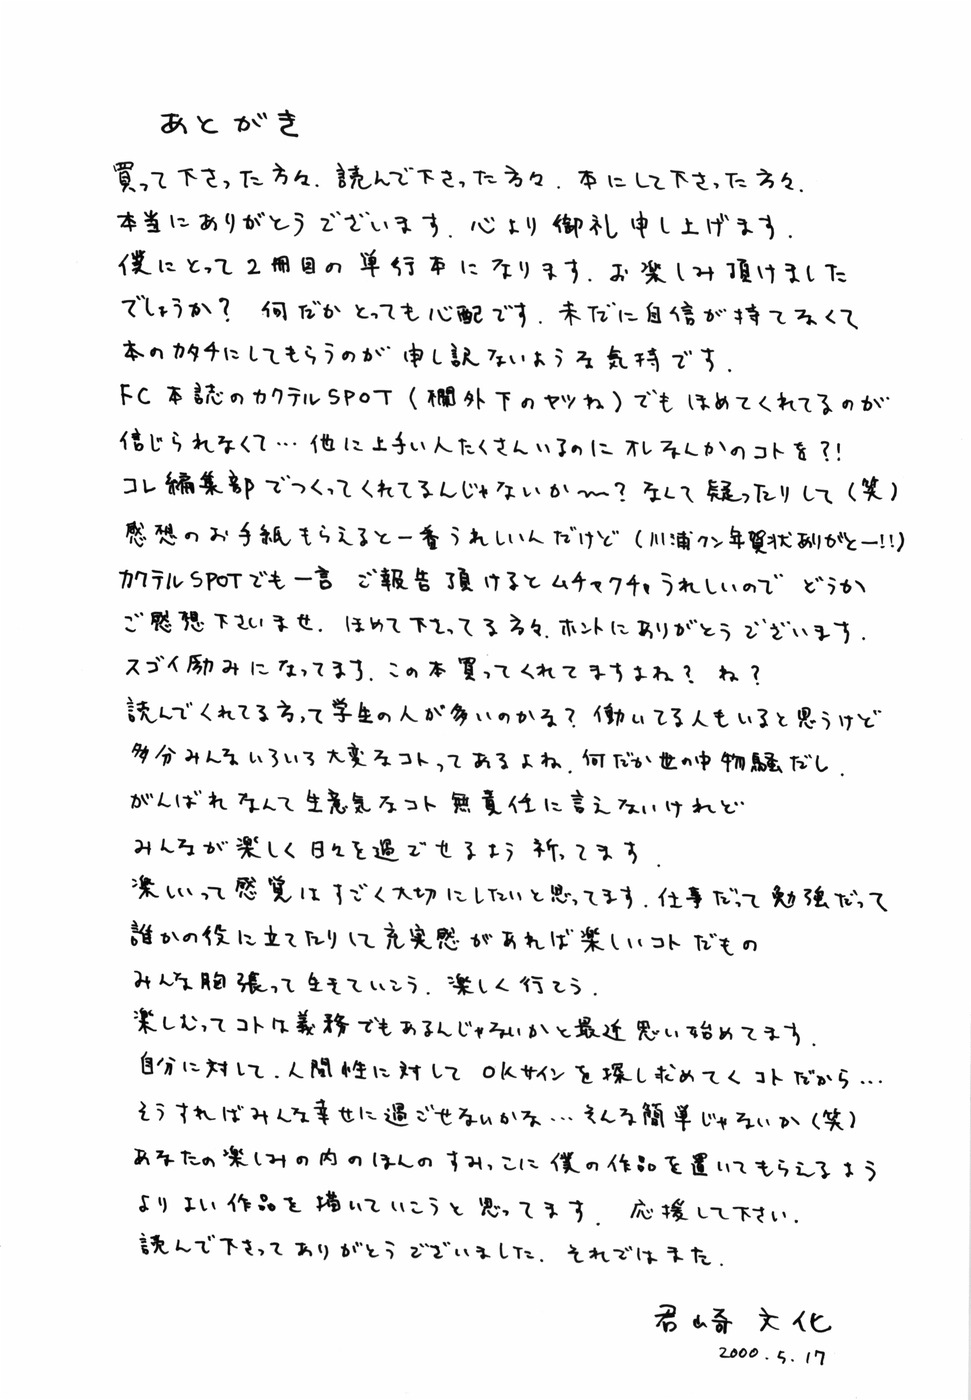 あとがき
買って下さった方々．読んで下さった方々．本にして下さった方々．
本当にありがとうございます．心より御礼申し上げます．
僕にとって2冊目の単行本になります．お楽しみ頂けました
でしょうか？ 何だかとっても心配です．未だに自信が持てなくて
本のカタチにしてもらうのが申し訳ないような気持です．
FC本誌のカクテルSPOT（欄外下のヤツね）でもほめてくれてるのが
信じられなくて…他に上手い人たくさんいるのにオレなんかのコトを？！
コレ編集部でつくってくれてるんじゃないか〜？なんて疑ったりして（笑）
感想のお手紙もらえると一番うれしいんだけど（川浦クン年賀状ありがとー!!）
カクテルSPOTでも一言 ご報告頂けるとムチャクチャうれしいので どうか
ご感想下さいませ．ほめて下さってる方々．ホントにありがとうございます．
スゴイ励みになってます．この本買ってくれてますよね？ ね？
読んでくれてる方って学生の人が多いのかな？働いてる人もいると思うけど
多分みんないろいろ大変なコトってあるよね．何だか世の中物騒だし．
がんばれなんて生意気なコト無責任に言えないけれど
みんなが楽しく日々を過ごせるよう祈ってます．
楽しいって感覚はすごく大切にしたいと思ってます．仕事だって勉強だって
誰かの役に立てたりして充実感があれば楽しいコトだもの
みんな胸張って生きていこう．楽しく行こう．
楽しむってコトは義務でもあるんじゃないかと最近思い始めてます．
自分に対して．人間性に対してOKサインを探し求めてくコトだから…
そうすればみんな幸せに過ごせないかな…そんな簡単じゃないか（笑）
あなたの楽しみの内のほんのすみっこに僕の作品を置いてもらえるよう
よりよい作品を描いていこうと思ってます． 応援して下さい．
読んで下さってありがとうございました．それではまた．
君崎 文化
2000.5.17